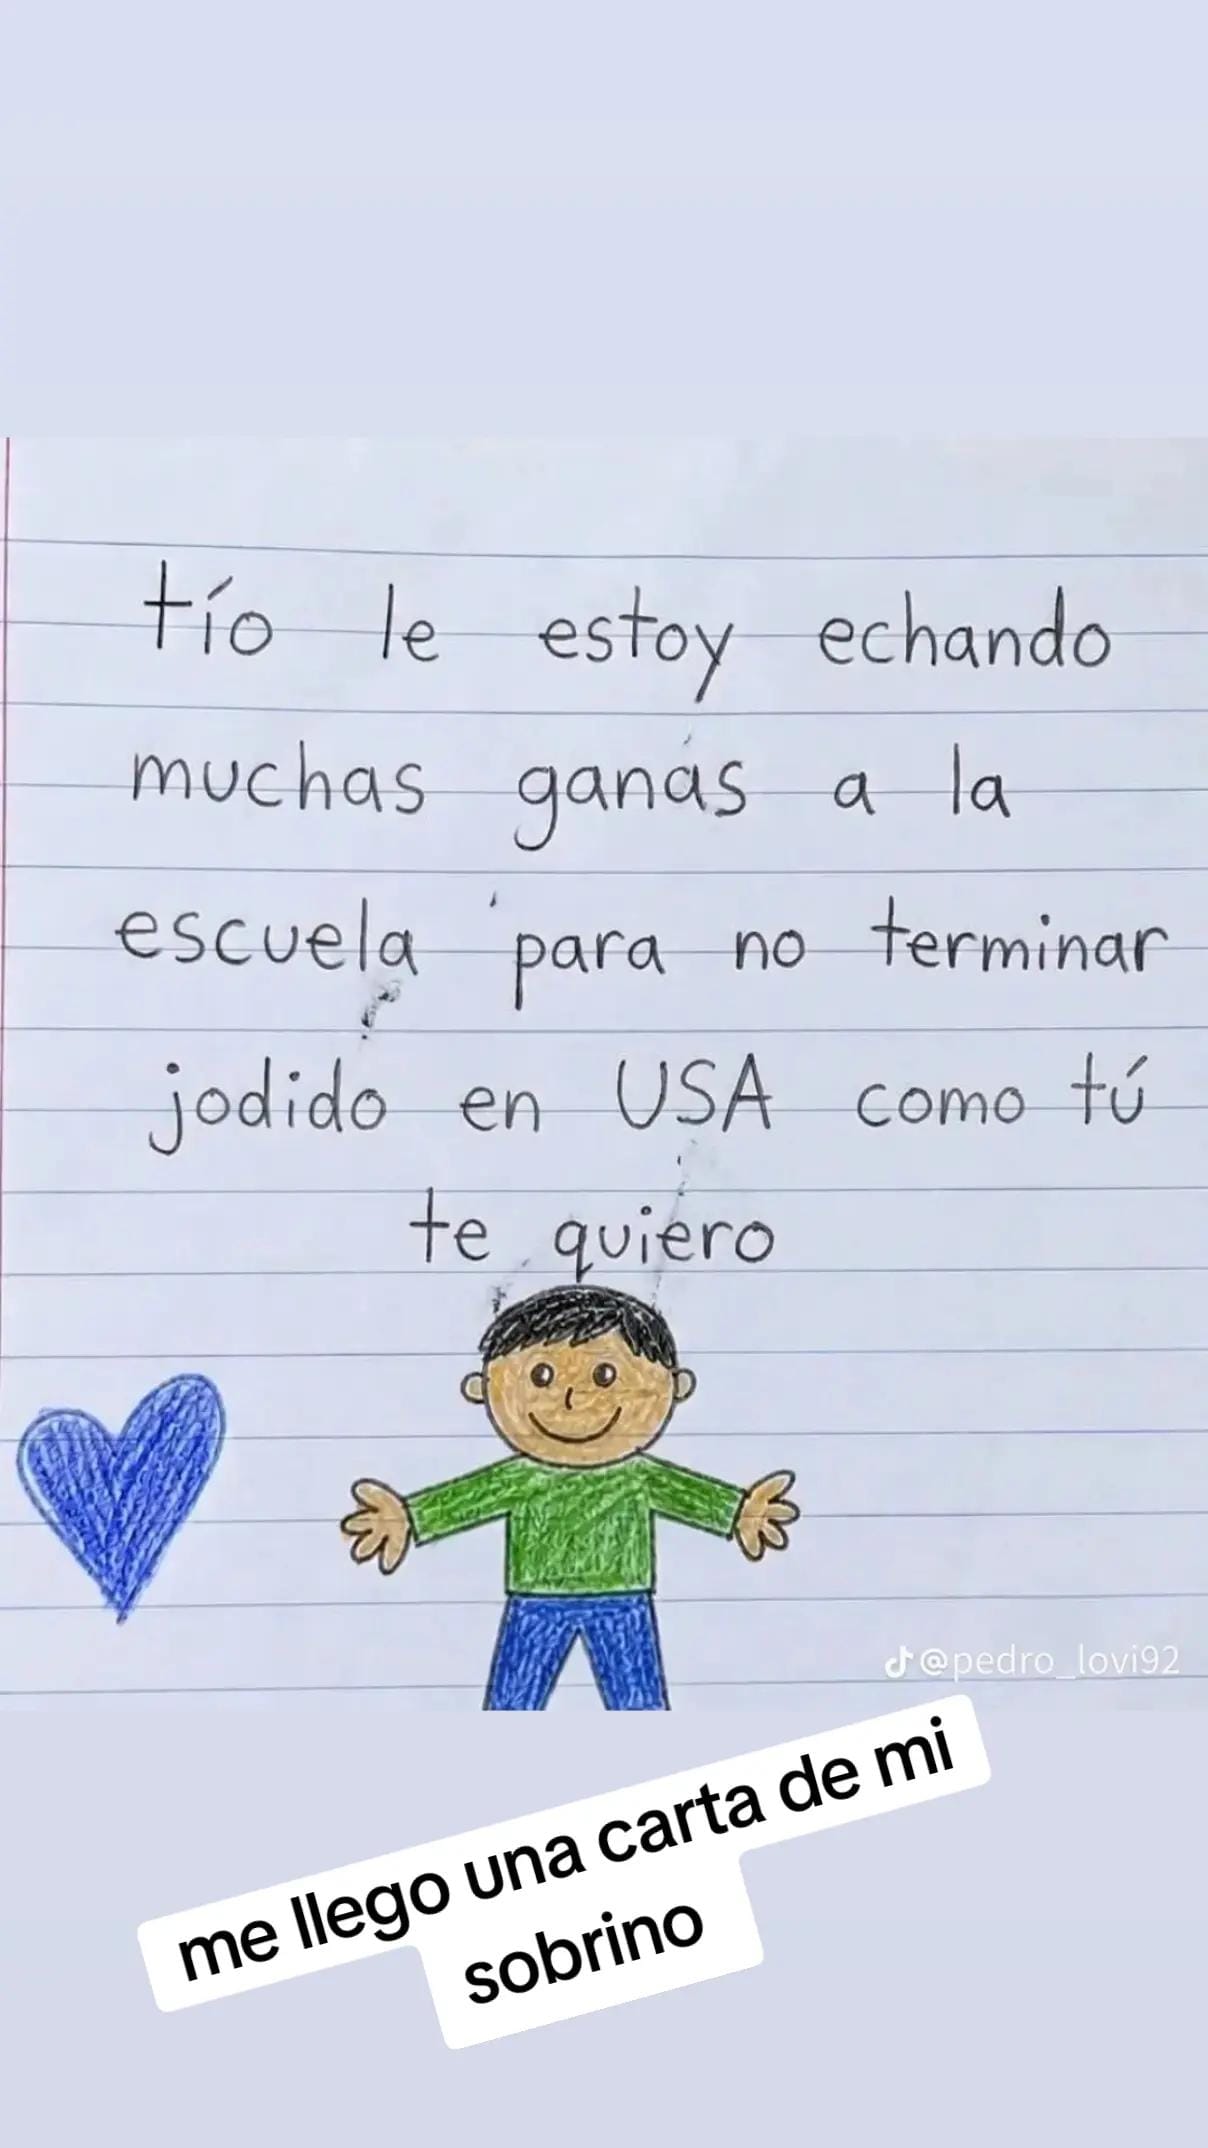 tío le estoy echando
muchas ganas a la
escuela para no terminar
jodido en USA como tú
te quiero
@pedro_lovi92
me llego una carta de mi
sobrino